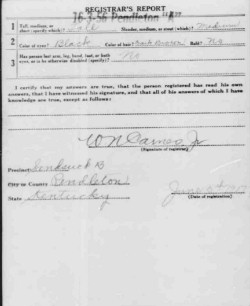 REGISTRAR'S REPORT
16-3-56 Pendleton "A"
1 Tall, medium, or short (specify which)? Tall Slender, medium, or stout (which)? Medium
2 Color of eyes? Black Color of hair? Dark Brown Bald? No
3 Has person lost arm, leg, hand, foot, or both eyes, or is he otherwise disabled (specify)? No
I certify that my answers are true, that the person registered has read his own answers, that I have witnessed his signature, and that all of his answers of which I have knowledge are true, except as follows:
W N Barnes Jr
(Signature of registrar)
Precinct
City or County Pendleton
State Kentucky
June 5th
(Date of registration)